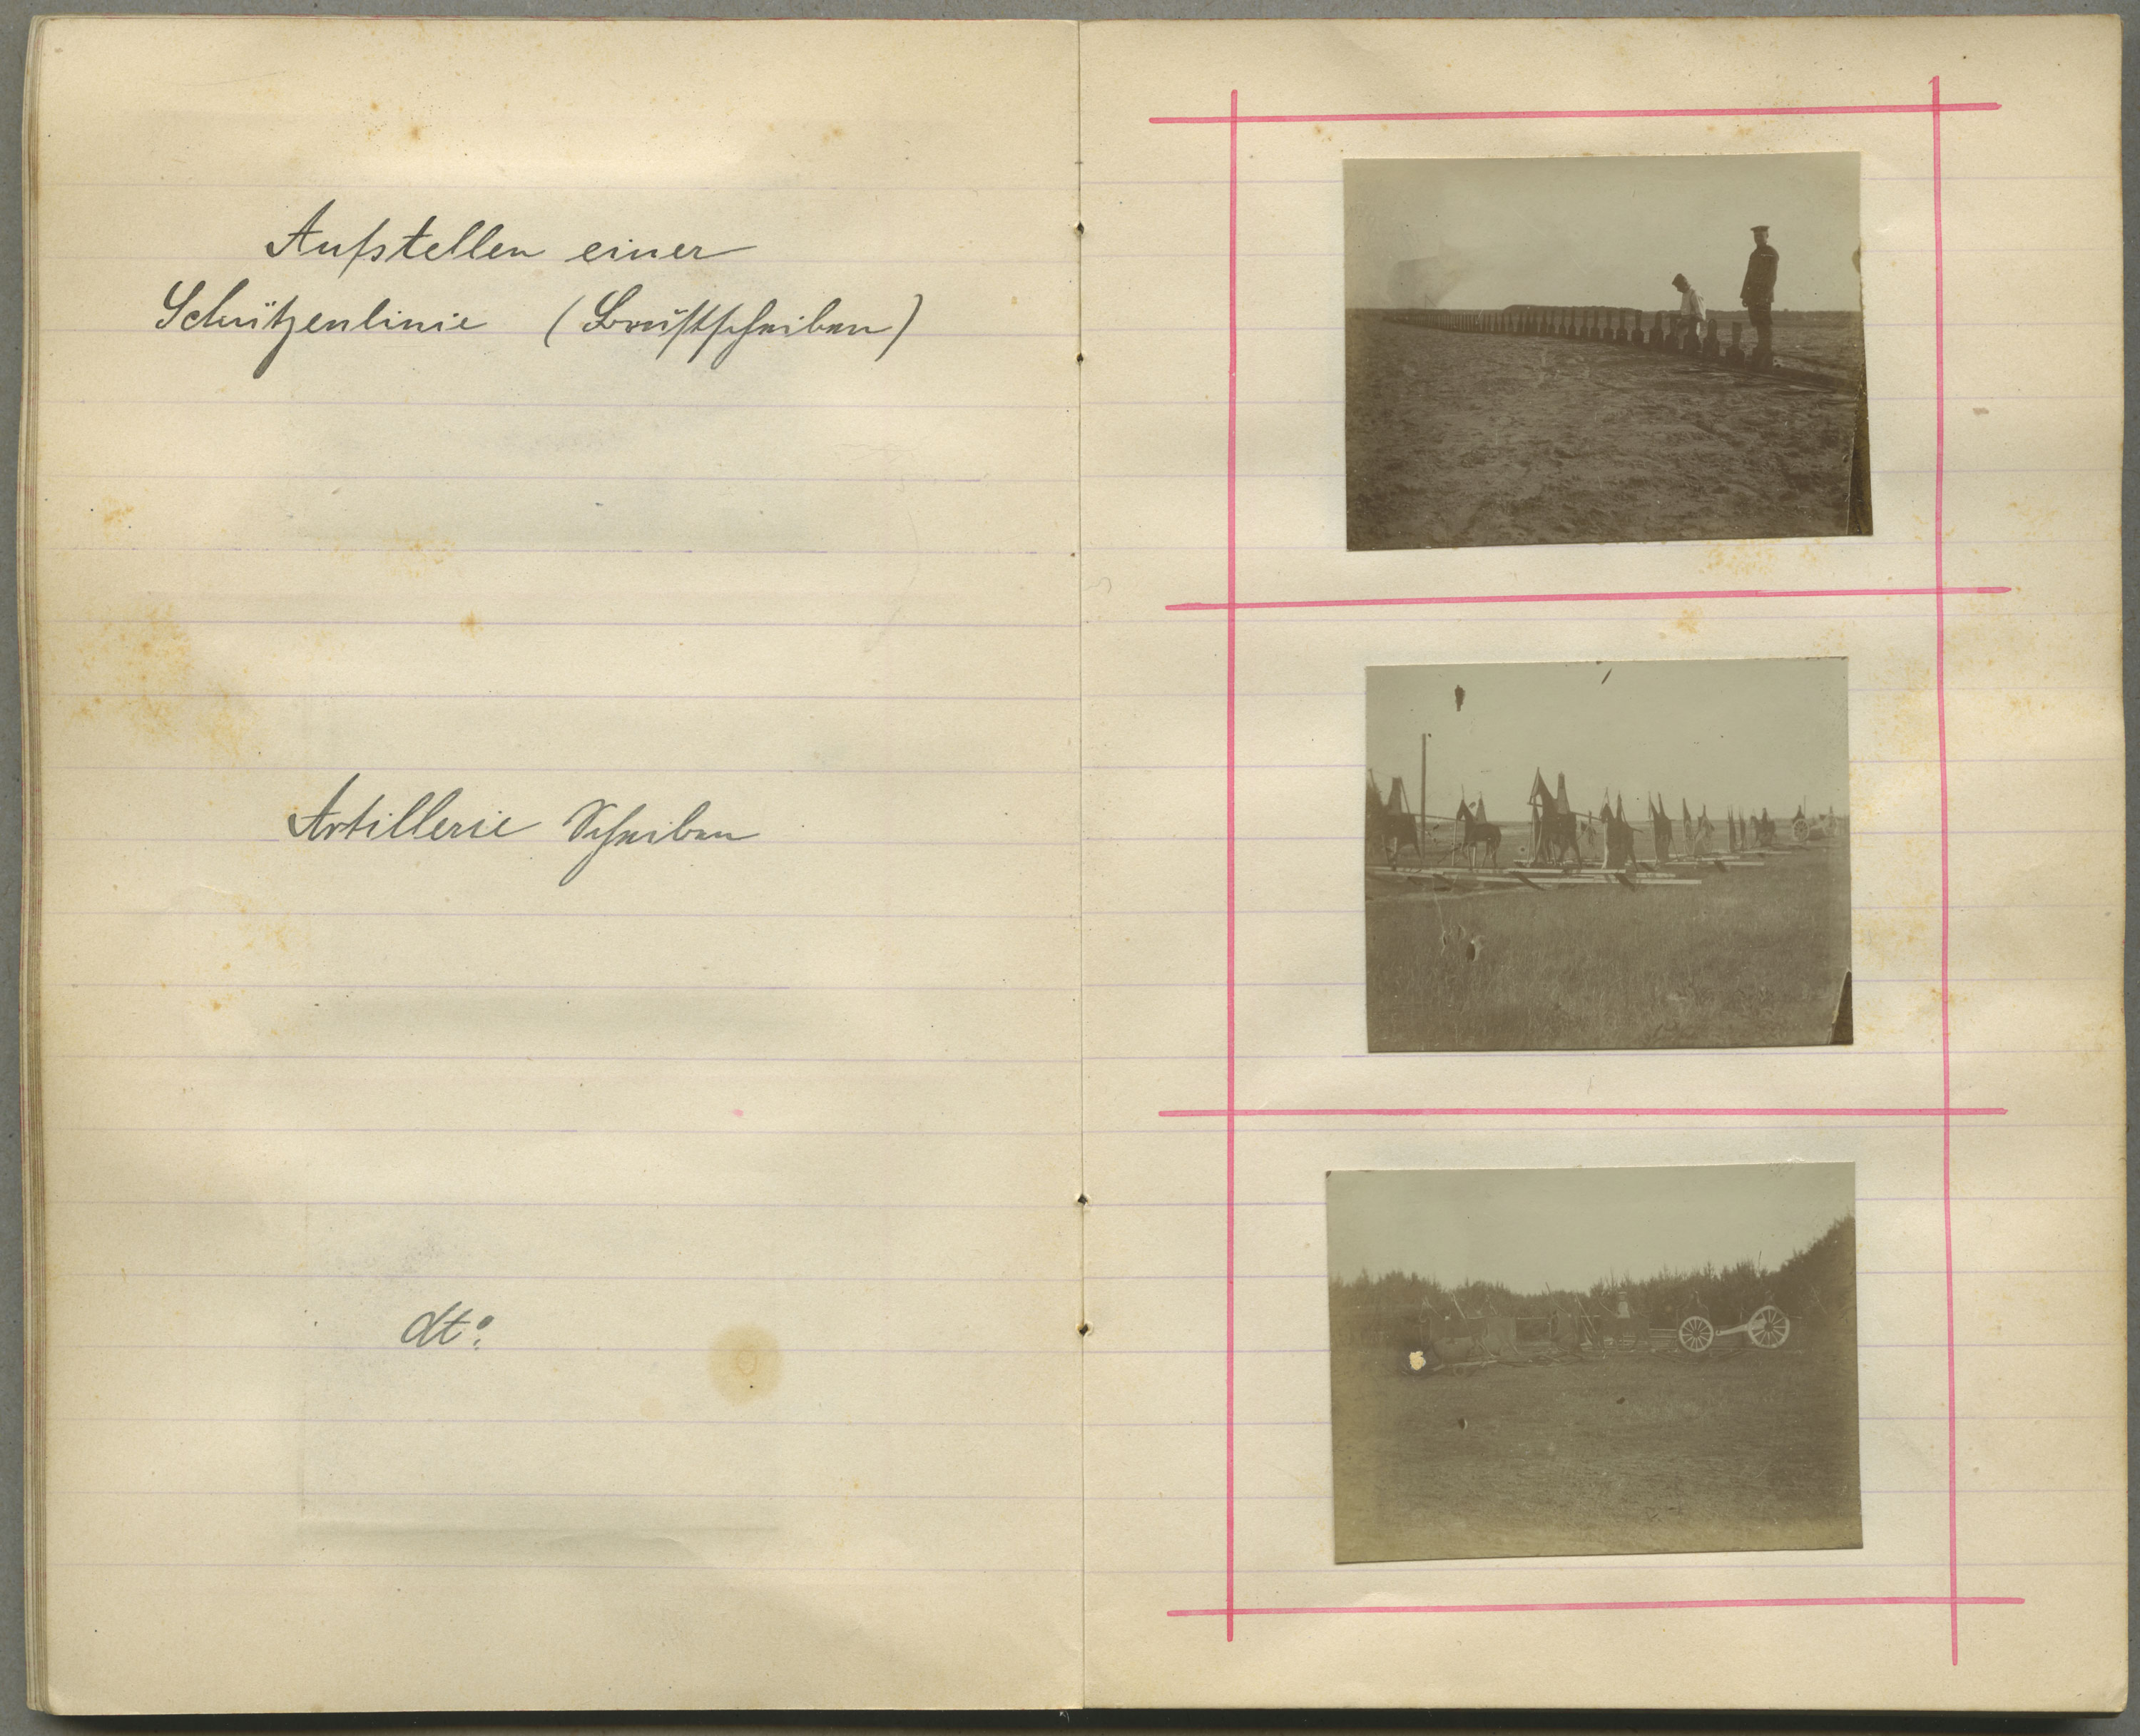 Aufstellen einer
Schützenlinie (Brustscheiben)
Artillerie Scheiben
dto.